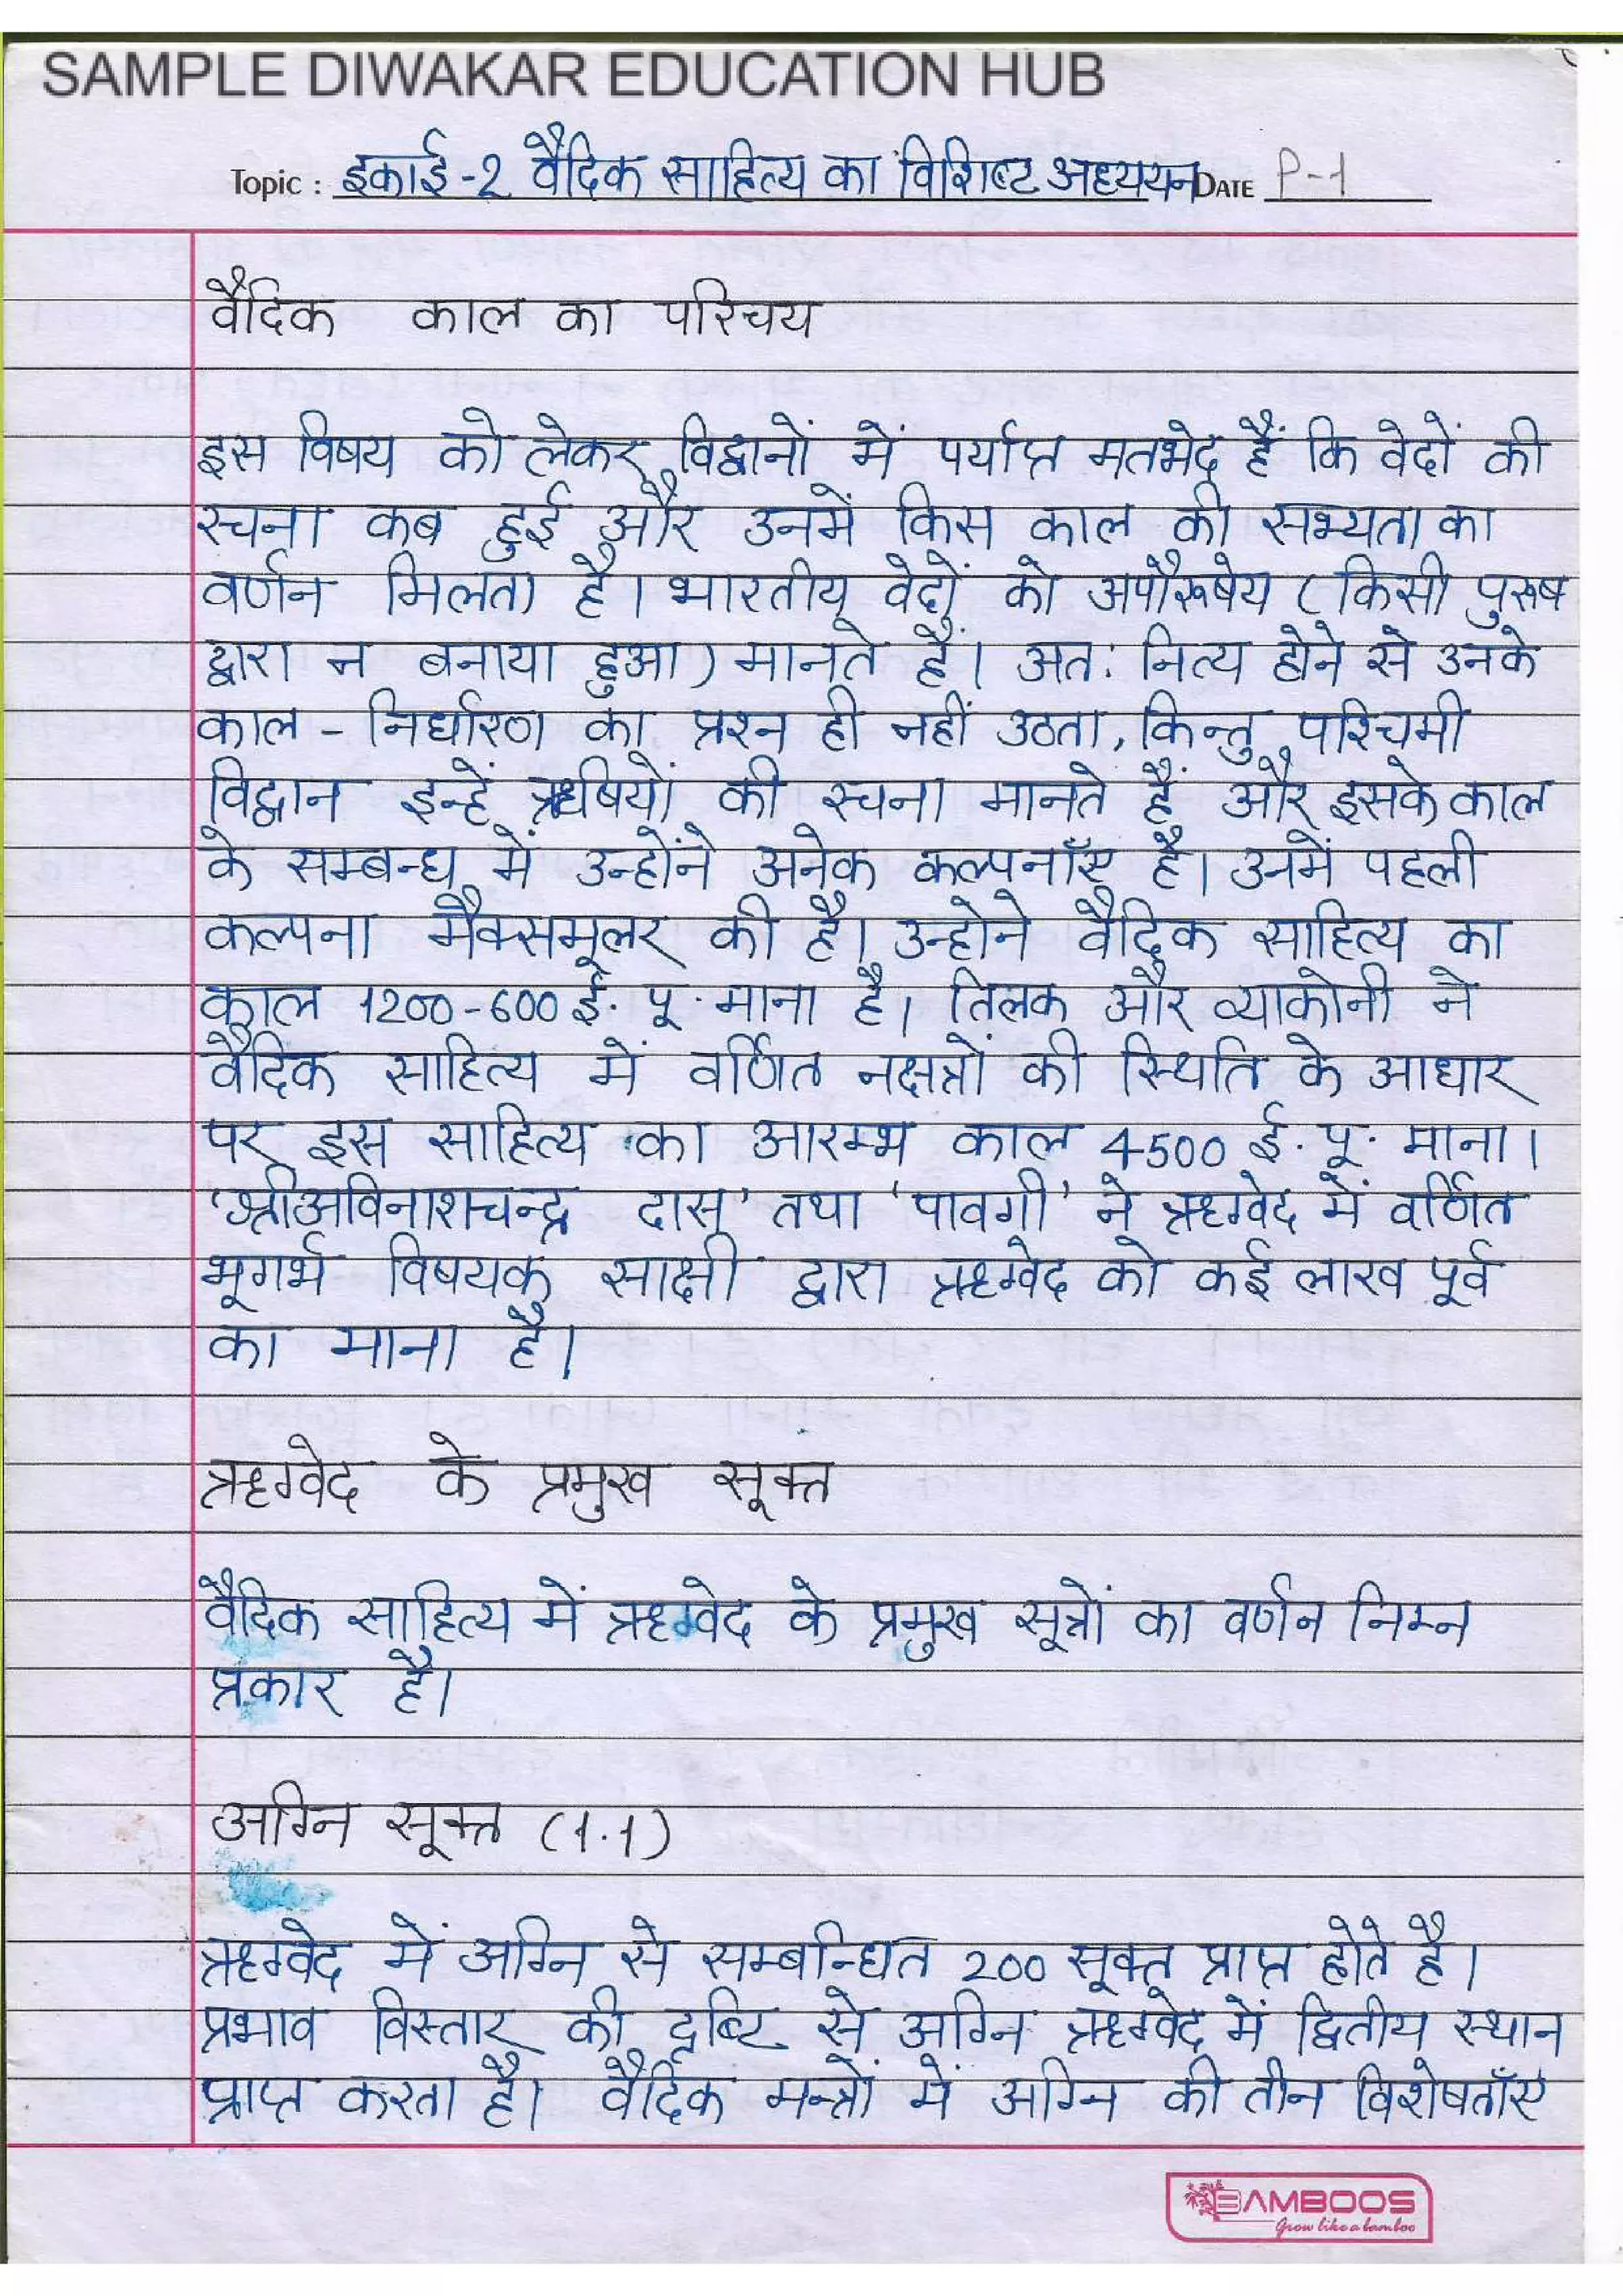 SAMPLE DIWAKAR EDUCATION HUB
Topic : इकाई-2 वैदिक साहित्य का विशिष्ट अध्ययन DATE P-1
वैदिक काल का परिचय
इस विषय को लेकर विद्वानों में पर्याप्त मतभेद हैं कि वेदों की
रचना कब हुई और उनमें किस काल की सभ्यता का
वर्णन मिलता है। भारतीय वेदों को अपौरूषेय (किसी पुरूष
द्वारा न बनाया हुआ) मानते हैं। अत: नित्य होने से उनके
काल - निर्धारण का प्रश्न ही नहीं उठता, किन्तु पश्चिमी
विद्वान इन्हें ऋषियों की रचना मानते हैं और इसके काल
के सम्बन्ध में उन्होंने अनेक कल्पनाँए है। उनमें पहली
कल्पना मैक्समूलर की है। उन्होने वैदिक साहित्य का
काल 1200-600 ई. पू. माना है। तिलक और व्याकोनी ने
वैदिक साहित्य में वर्णित नक्षत्रों की स्थिति के आधार
पर इस साहित्य का आरम्भ काल 4500 ई. पू. माना।
'श्रीअविनाशचन्द्र दास' तथा 'पावगी' ने ऋग्वेद में वर्णित
भूगर्भ विषयक साक्षी द्वारा ऋग्वेद को कई लाख पूर्व
का माना है।
ऋग्वेद के प्रमुख सूक्त
वैदिक साहित्य में ऋग्वेद के प्रमुख सूत्रों का वर्णन निम्न
प्रकार है।
अग्नि सूक्त (1.1)
ऋग्वेद में अग्नि से सम्बन्धित 200 सूक्त प्राप्त होते है।
प्रभाव विस्तार की दृष्टि से अग्नि ऋग्वेद में द्वितीय स्थान
प्राप्त करता है। वैदिक मन्त्रों में अग्नि की तीन विशेषताँए
BAMBOOS
Grow like a bamboo